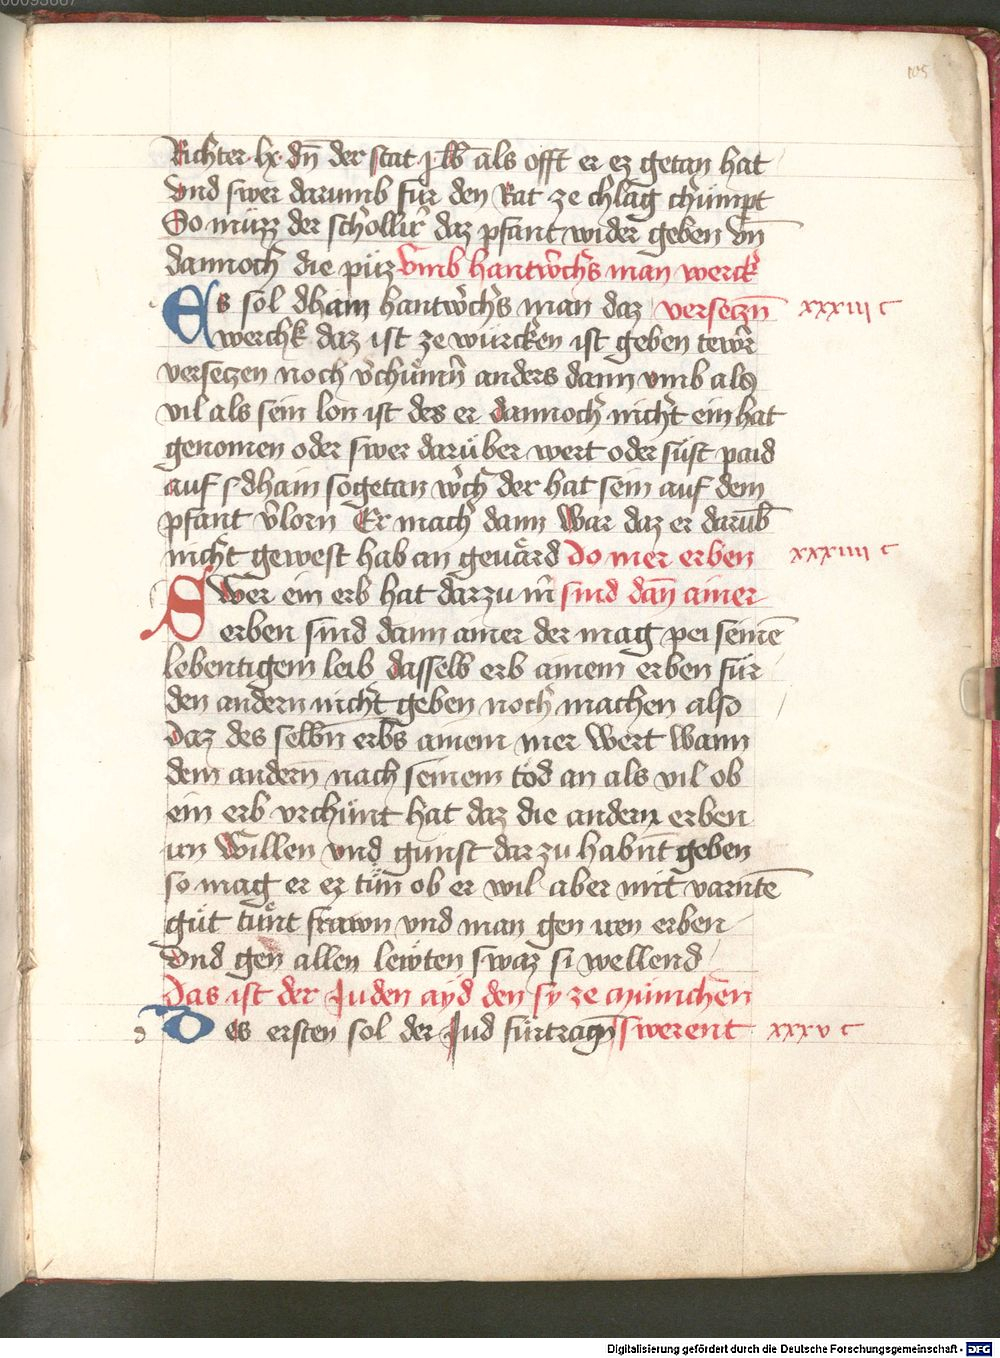 105
Richter · lx · dn̄ der stat · j · lb̄ als offt er ez getan hat
vnd swer darumb für den Rat ze chlag chümpt
So müzz der scholler daz pfant wider geben vn̄
dannoch die püz Vmb hantwͨchs man werck
Es sol dhain hantwͨchs man daz verseczn̄ xxxiii c
werchk daz ist ze würcken ist geben tewr̄
verseczen noch vͨchümn̄ anders dann vmb als
vil als sein lon ist des er dannoch nicht ein hat
genomen oder swer darüber wert oder süst paid
auf dhain sogetan wͨch der hat sein auf dem
pfant vͨlorn Er mach dann war daz er darūb
nicht gewest hab an geuärd Do mer erben xxxiiii c
Swer ein erb hat darzu mͬ sind dan̄ ainer
erben sind dann ainer der mag pei seinē
lebentigem leib dasselb erb ainem erben für
den andern nicht geben noch machen also
Daz des selbn̄ erbs ainem mer wert wann
dem andern nach seinem tod an als vil ob
ein erb vrchünt hat daz die andern erben
irn willen vnd gunst darzu habn̄t geben
so mag er ez tün ob er wil aber mit varntē
güt tünt frawn vnd man gen iren erben
vnd gen allen lewten swaz si wellend
Das ist der Juden ayd den sy ze münichen
Des ersten sol der Jud fürtragn̄ swerent xxxv c
Digitalisierung gefördert durch die Deutsche Forschungsgemeinschaft - DFG